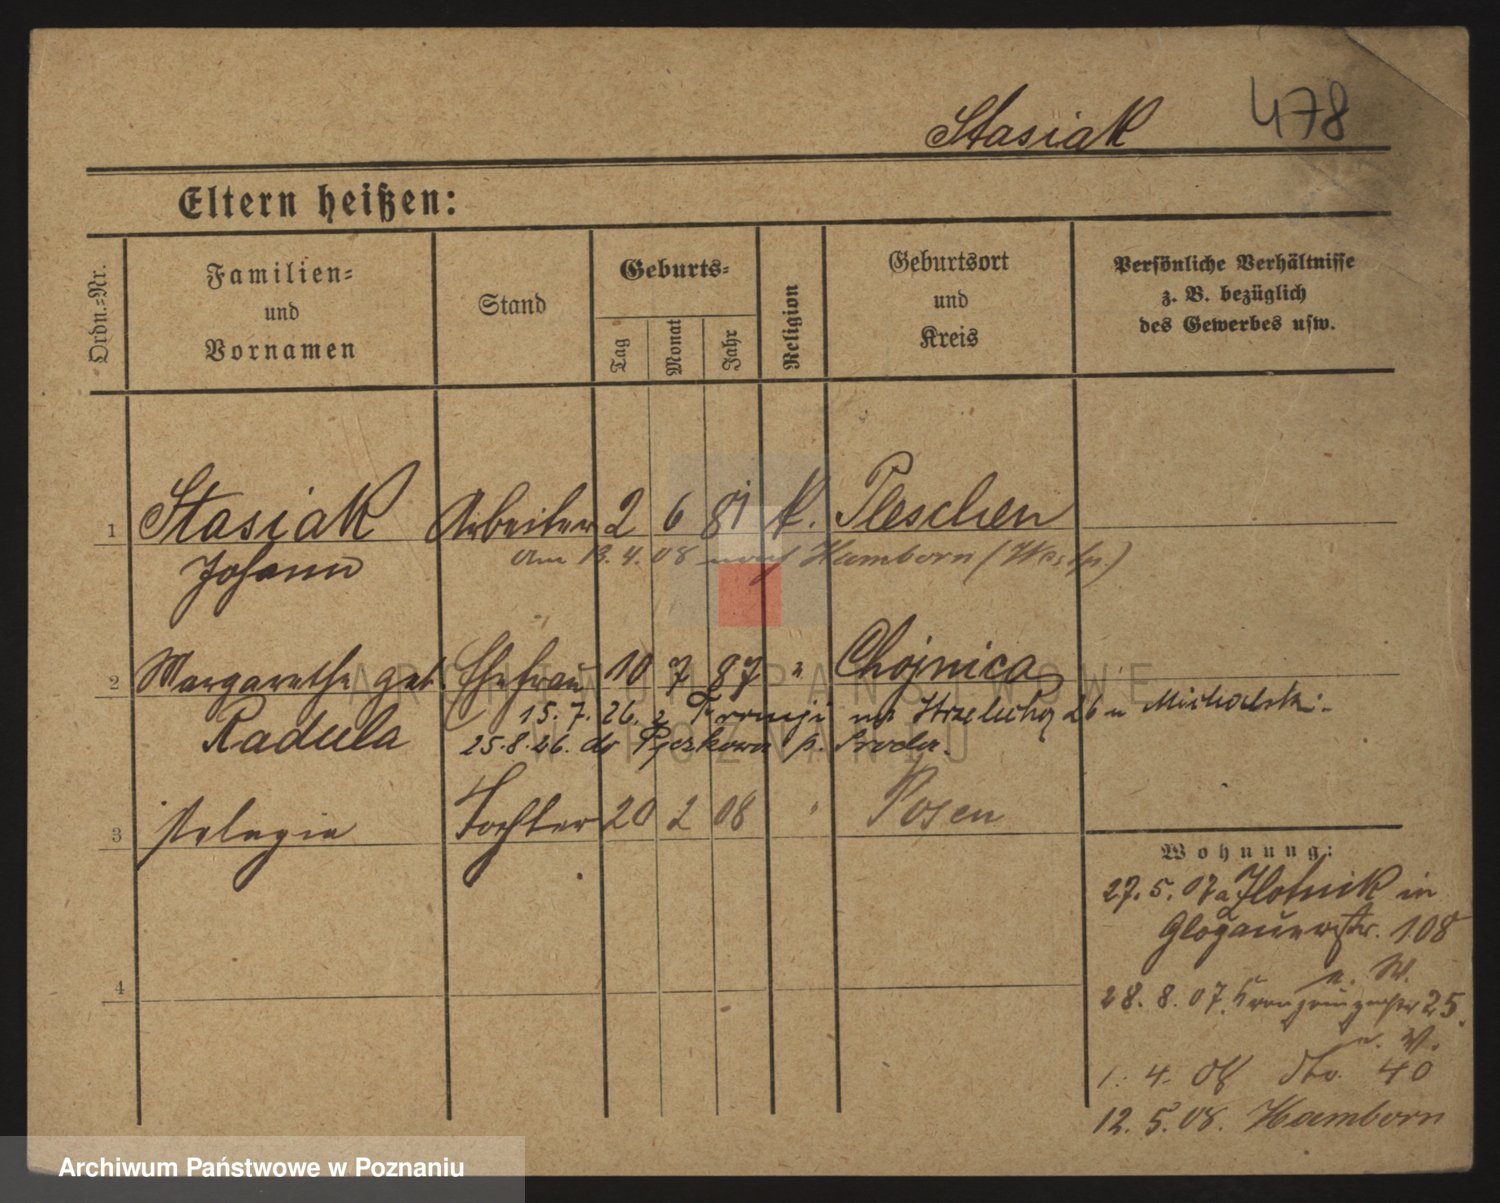 Stasiak 478
Eltern heißen:
Ordn.=Nr.
Familien=
und
Vornamen
Stand
Geburts=
Tag
Monat
Jahr
Religion
Geburtsort
und
Kreis
Persönliche Verhältnisse
z. B. bezüglich
des Gewerbes usw.
1 Stasiak Arbeiter 2 6 81 k. Pleschen
Johann
Am 13. 4. 08 nach Hamborn (Westp.)
2 Margarethe geb. Ehefrau 10 7 87 " Chojnica
Radula
15. 7. 26. z na 26 u Michalski
25. 8. 26. do p. Sroda.
3 Pelagia Tochter 20 2 08 " Posen
4
Wohnung:
27. 5. 07 a Zlotnik in
Glogauerstr. 108
n. W.
28. 8. 07. 25.
n. W.
1. 4. 08 dto. 40
12. 5. 08. Hamborn
ARCHIWUM PAŃSTWOWE
W POZNANIU
Archiwum Państwowe w Poznaniu